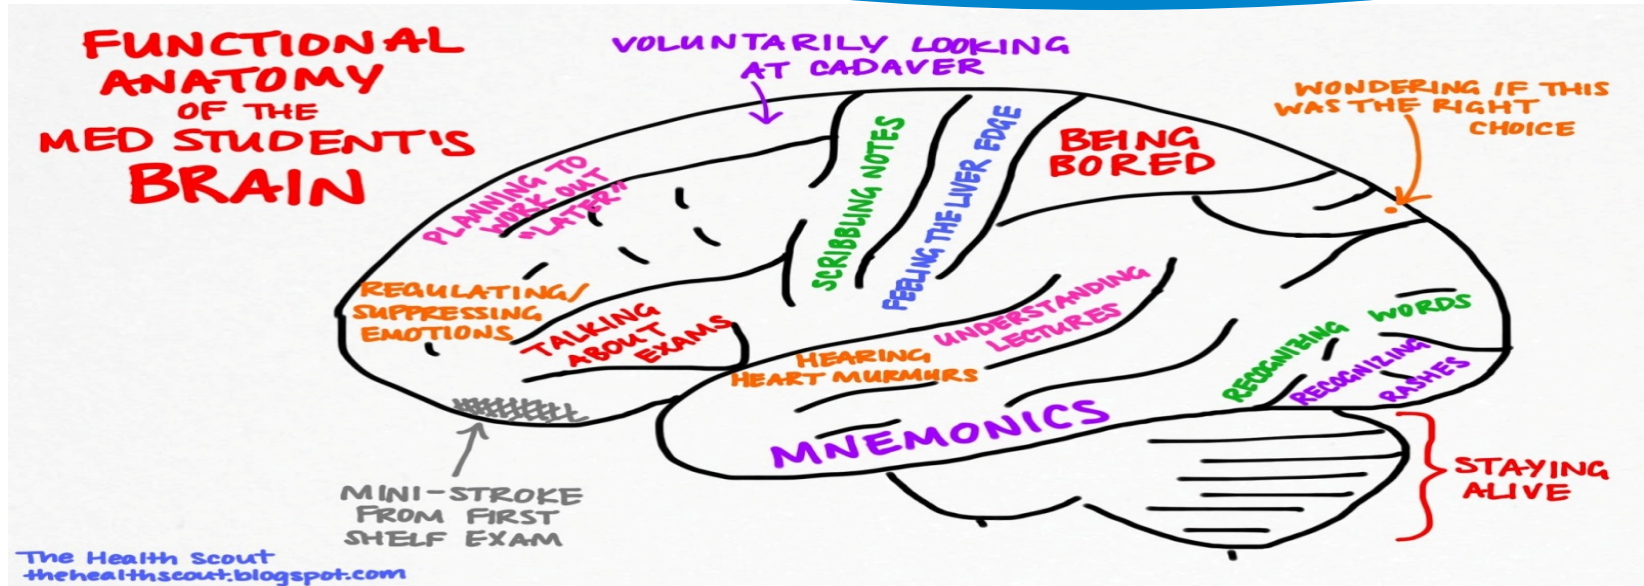 FUNCTIONAL
ANATOMY
OF THE
MED STUDENT'S
BRAIN
VOLUNTARILY LOOKING
AT CADAVER
WONDERING IF THIS
WAS THE RIGHT
CHOICE
PLANNING TO
WORK OUT
"LATER"
SCRIBBLING NOTES
FEELING THE LIVER EDGE
BEING
BORED
REGULATING/
SUPPRESSING
EMOTIONS
TALKING
ABOUT
EXAMS
HEARING
HEART MURMURS
UNDERSTANDING
LECTURES
RECOGNIZING WORDS
RECOGNIZING
RASHES
MNEMONICS
STAYING
ALIVE
MINI-STROKE
FROM FIRST
SHELF EXAM
The Health Scout
thehealthscout.blogspot.com